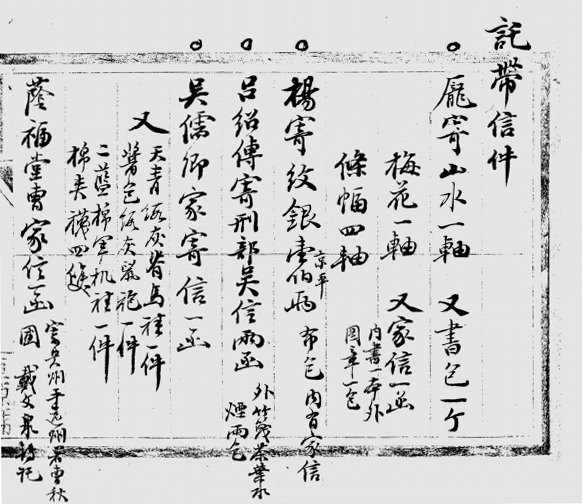 託帶信件
龐寄山水一軸 又書包一个
梅花一軸 又家信一函
條幅四軸 內書一本外
圖章一包
楊寄紋銀壹伯兩 京平 布包 內有家信
呂紹傳寄刑部吳信兩函 外竹茶葉水
煙兩包
吳儒卿家寄信一函
又 天青灰脊馬褂一件
醬色灰鼠袍一件
二藍棉軍机褂一件
棉夾襪四雙
蔭福堂曹家信一函